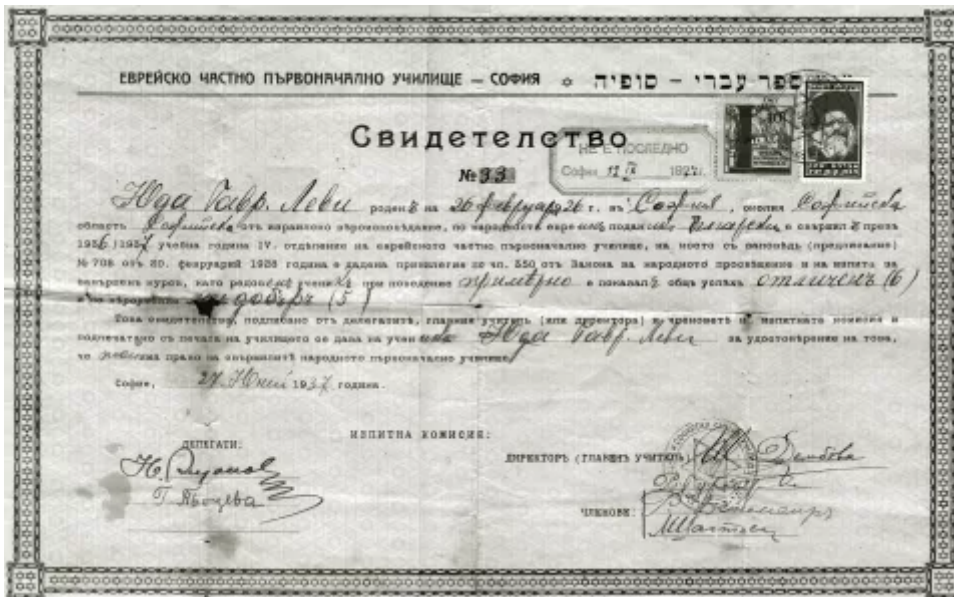 ЕВРЕЙСКО ЧАСТНО ПЪРВОНАЧАЛНО УЧИЛИЩЕ – СОФИЯ ✡ ספר עברי – סופיה
Свидетелство
НЕ Е ПОСЛЕДНО
№ 33
София 12 IX
Юда Гавр. Леви роденъ на 26 февруари 26 г. въ София, околия Софийска
область Софийска отъ израилско вѣроизповѣдание, по народность евре поданикъ Български е свършилъ презъ
1936/1937 учебна година IV. отдѣление на еврейското частно първоначално училище, на което съ заповѣдь (предписание)
№ 708 отъ 20. февруарий 1928 година е дадена привилегия по чл. 350 отъ Закона за народното просвѣщение и на изпита за
завършенъ курсъ, като редовенъ ученикъ при поведение примѣрно е показалъ общъ успѣхъ отличенъ (6)
добъръ (5)
Това свидетелство, подписано отъ делегатитѣ, главния учитель (или директора) и членоветѣ на изпитната комисия и
подпечатано съ печата на училището се дава на ученика Юда Гавр. Леви за удостовѣрение на това,
че права на свършилитѣ народното първоначално училище.
София, 27 Юний 1937 година.
ИЗПИТНА КОМИСИЯ:
ДЕЛЕГАТИ:
ДИРЕКТОРЪ (ГЛАВЕНЪ УЧИТЕЛЬ)
ЧЛЕНОВЕ: